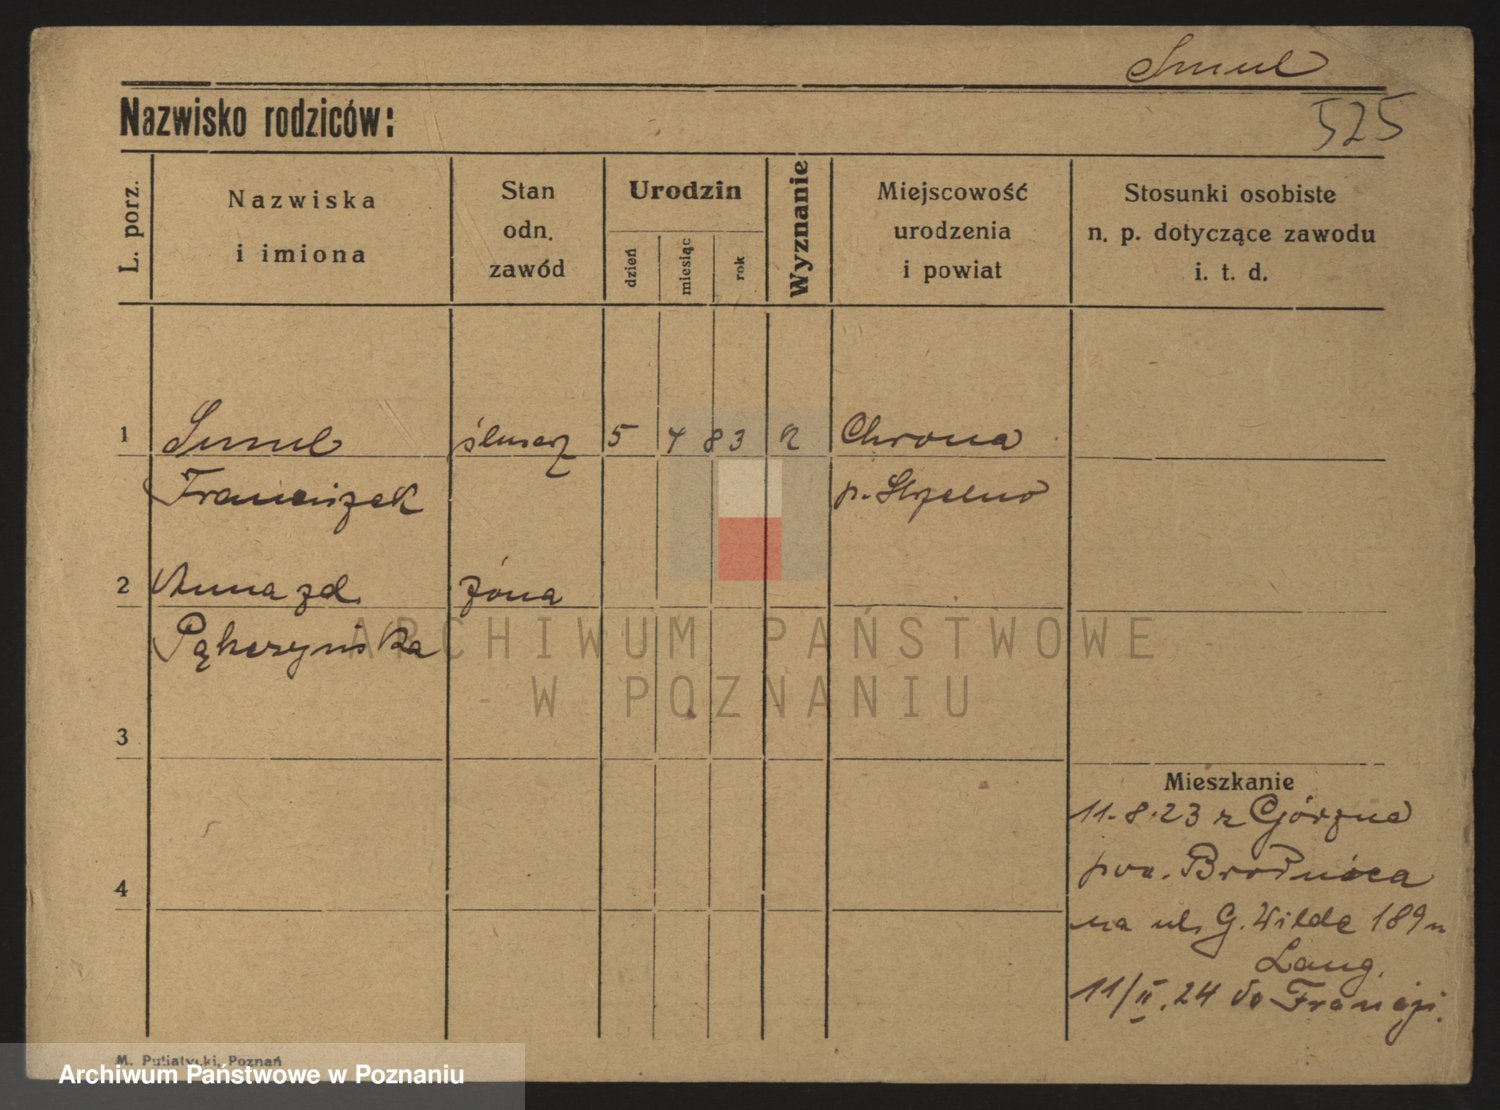 Smul
Nazwisko rodziców:
525
L. porz.
Nazwiska
i imiona
Stan
odn.
zawód
Urodzin
dzień
miesiąc
rok
Wyznanie
Miejscowość
urodzenia
i powiat
Stosunki osobiste
n. p. dotyczące zawodu
i. t. d.
1
Smul
ślusarz
5
4
83
Chrona
Franciszek
p. Strzelno
2
Anna zd.
żona
ARCHIWUM PAŃSTWOWE
W POZNANIU
3
Mieszkanie
11.8.23 z Górzna
pow. Brodnica
4
na ul. G. Wilde 189
Lang.
11/II.24 do Francji.
M. Putiatycki, Poznań
Archiwum Państwowe w Poznaniu